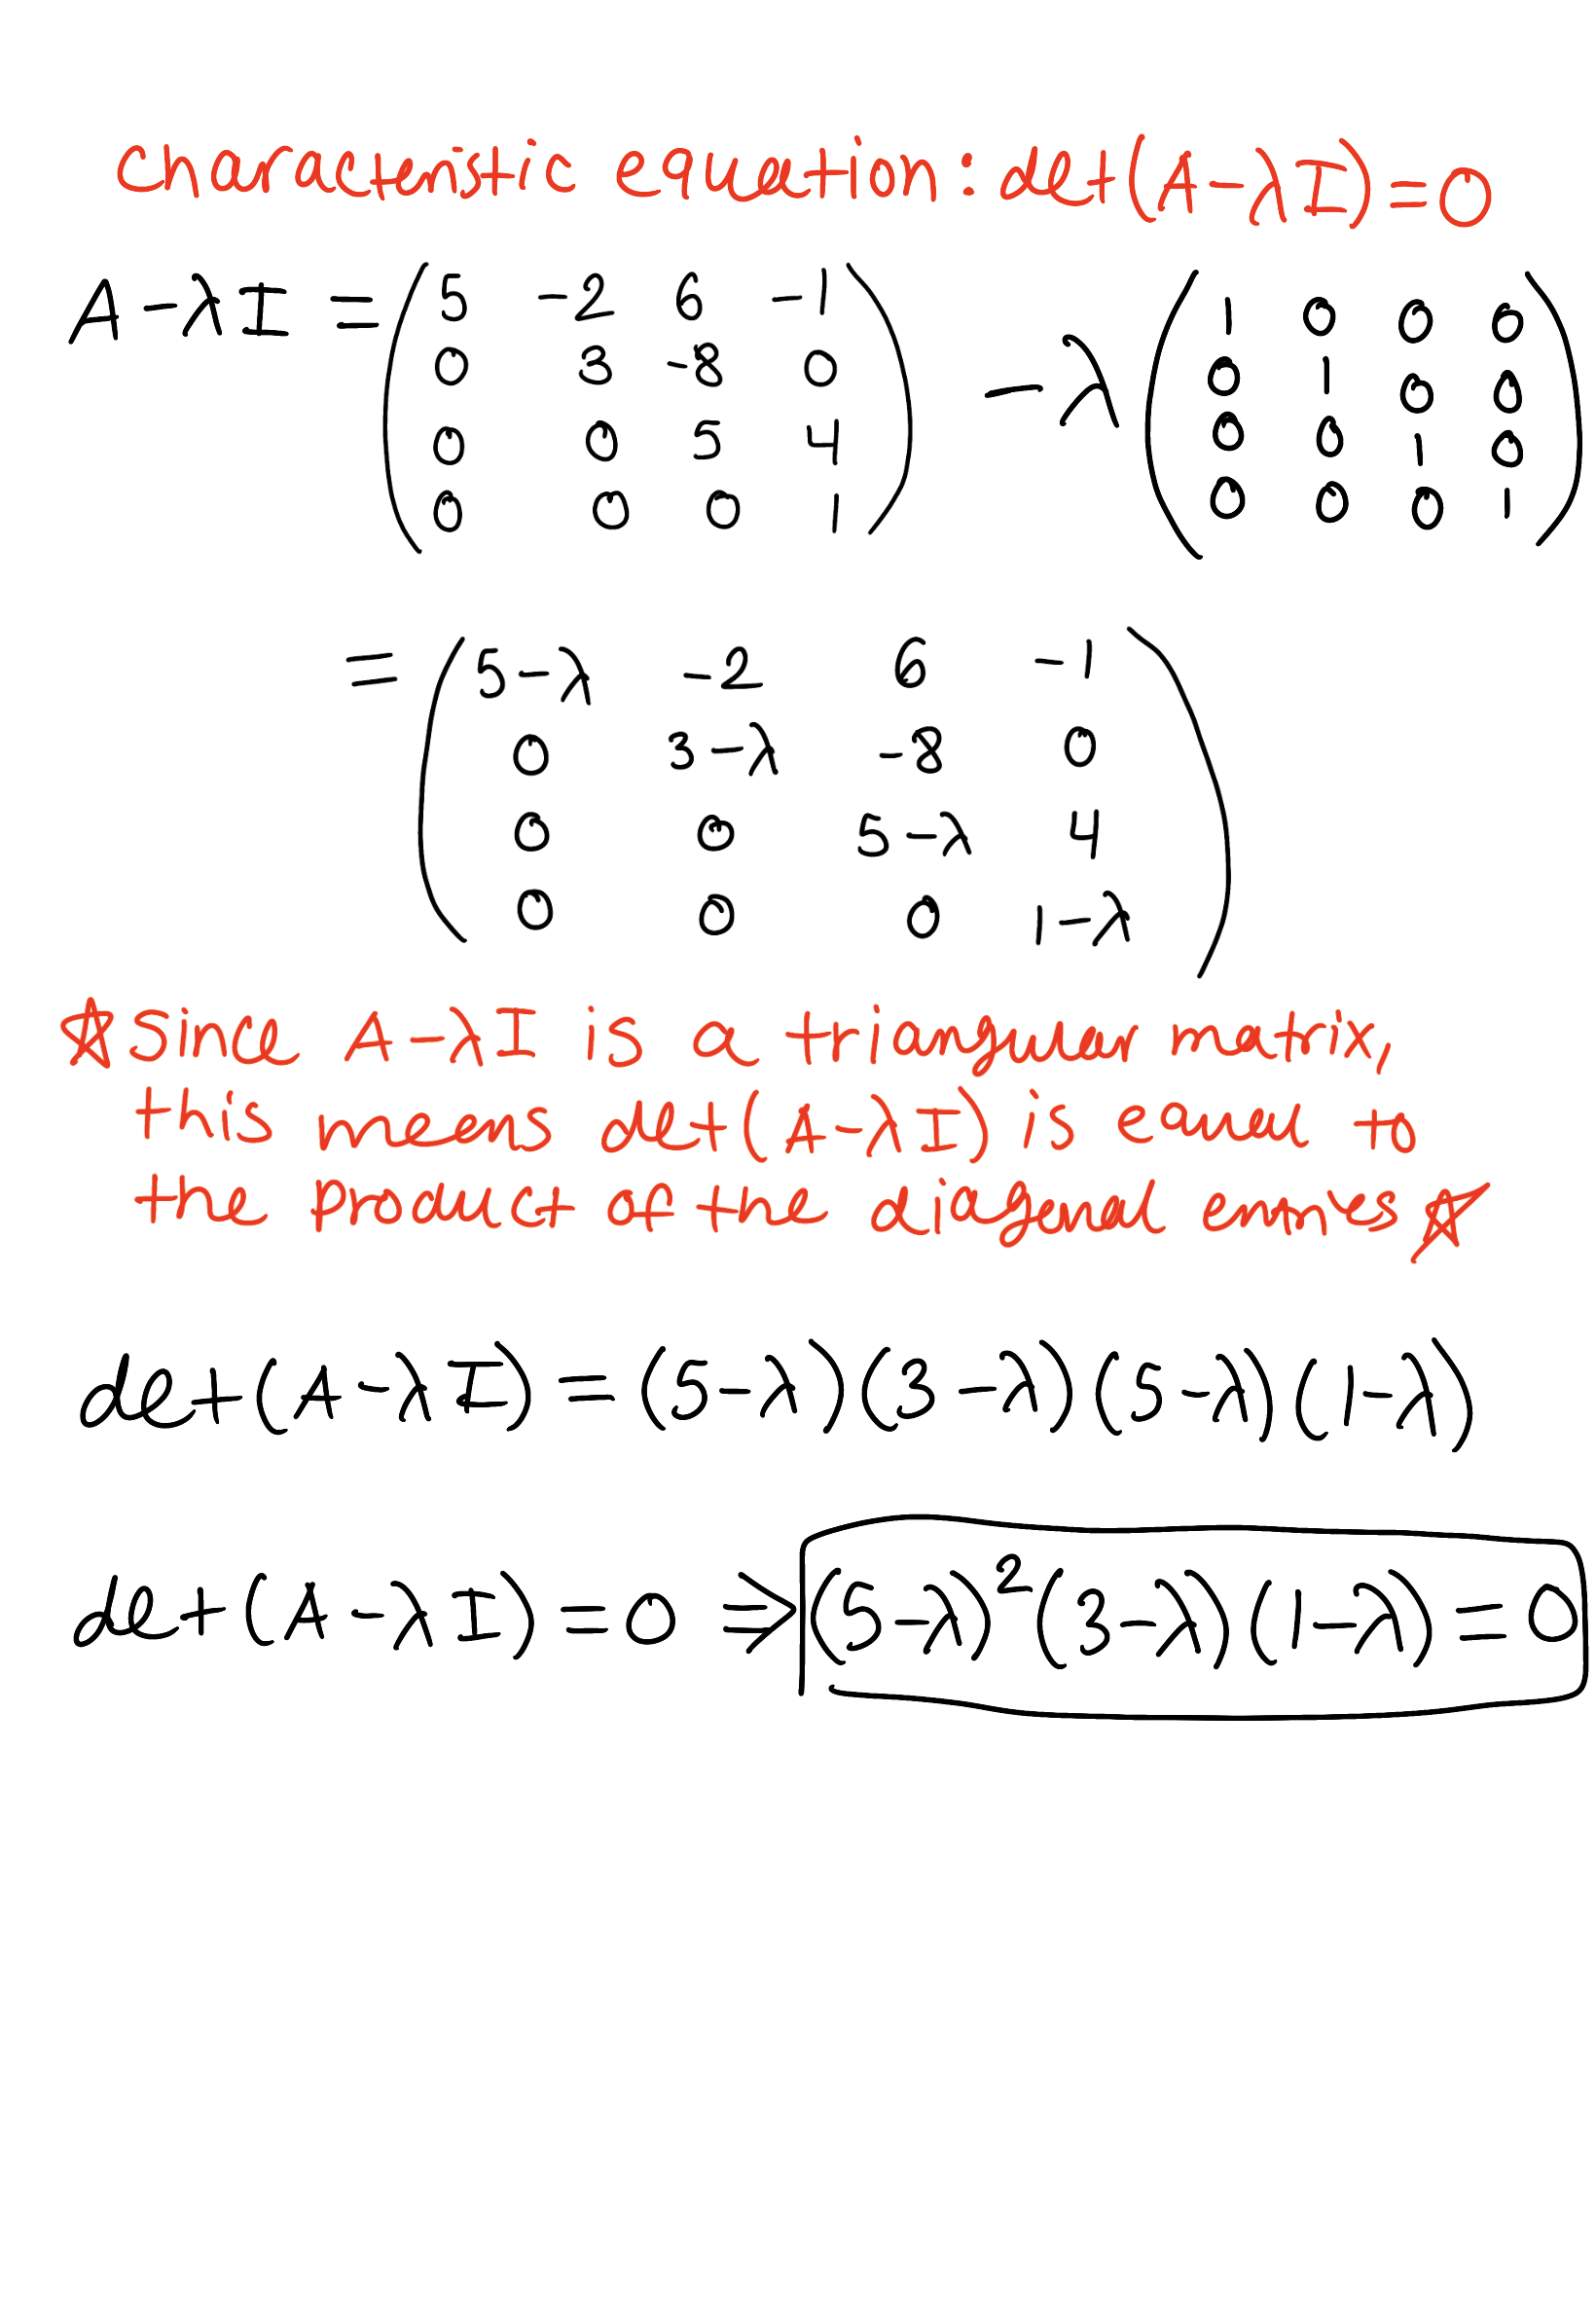 characteristic equation: det(A-λI)=0
A-λI = (5 -2 6 -1) -λ (1 0 0 0)
0 3 -8 0 0 1 0 0
0 0 5 4 0 0 1 0
0 0 0 1 0 0 0 1
= (5-λ -2 6 -1)
0 3-λ -8 0
0 0 5-λ 4
0 0 0 1-λ
☆ since A-λI is a triangular matrix,
this means det(A-λI) is equal to
the product of the diagonal entries ☆
det(A-λI) = (5-λ)(3-λ)(5-λ)(1-λ)
det(A-λI) = 0 ⇒ (5-λ)²(3-λ)(1-λ) = 0